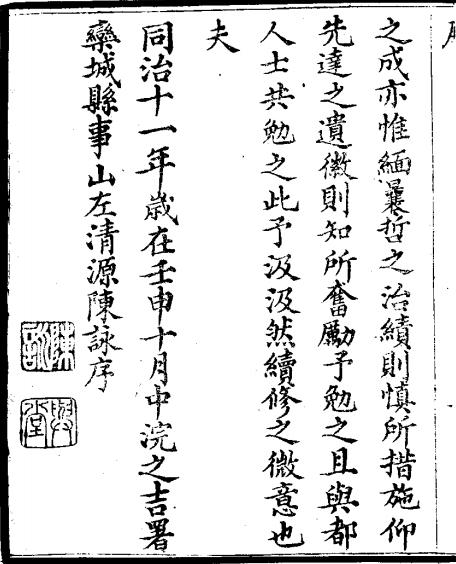 之成亦惟緬曩哲之治績則慎所措施仰
先達之遺徽則知所奮勵予勉之且與都
人士共勉之此予汲汲然續修之微意也
夫
同治十一年歲在壬申十月中浣之吉署
欒城縣事山左清源陳詠序